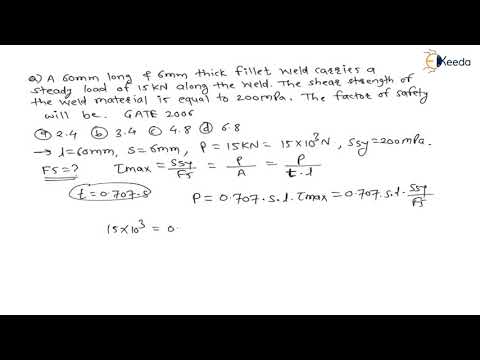 Keeda
Q) A 60mm long & 6mm thick fillet weld carries a
steady load of 15KN along the weld. The shear strength of
the weld material is equal to 200mpa. The factor of safety
will be. GATE 2006
a 2.4 b 3.4 c 4.8 d 6.8
→ l=60mm, S=6mm, P=15KN=15×10³N, Ssy=200mpa.
FS=? τmax = Ssy/FS = P/A = P/t.l
t=0.707.S P=0.707.S.l.τmax=0.707.S.l.Ssy/FS
15×10³ = 0.